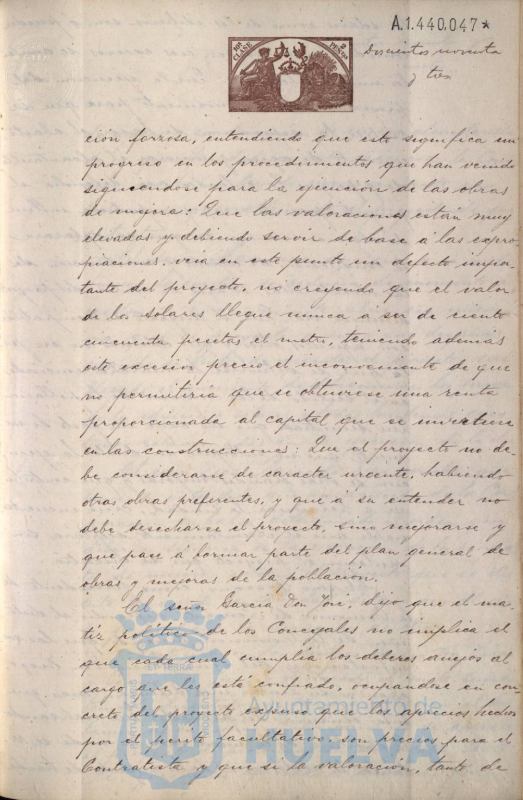 A.1.440.047*
10ª CLASE
2 PESETAS
Doscientos noventa
y tres
ción forzosa, entendiendo que esto significa un
progreso en los procedimientos que han venido
siguiendose para la ejecución de las obras
de mejora: Que las valoraciones están muy
elevadas y debiendo servir de base á las expro-
piaciones, veia en este punto un defecto impor-
tante del proyecto, no creyendo que el valor
de los solares llegue nunca a ser de ciento
cincuenta pesetas el metro, teniendo además
este excesivo precio el inconveniente de que
no permitiria que se obtuviese una renta
proporcionada al capital que se invirtiese
en las construcciones: Que el proyecto no de-
be considerarse de caracter urgente, habiendo
otras obras preferentes, y que á su entender no
debe desecharse el proyecto, sino mejorarse y
que pase á formar parte del plan general de
obras y mejoras de la población.
El señor García Don José, dijo que el ma-
tiz político de los Concejales no implica el
que cada cual cumplia los deberes anejos al
cargo que les está confiado, ocupandose en con-
creto del proyecto expuso que los aprecios hechos
por el perito facultativo son precios para el
Contratista y que si la valoración, tanto de
Ayuntamiento de
HUELVA